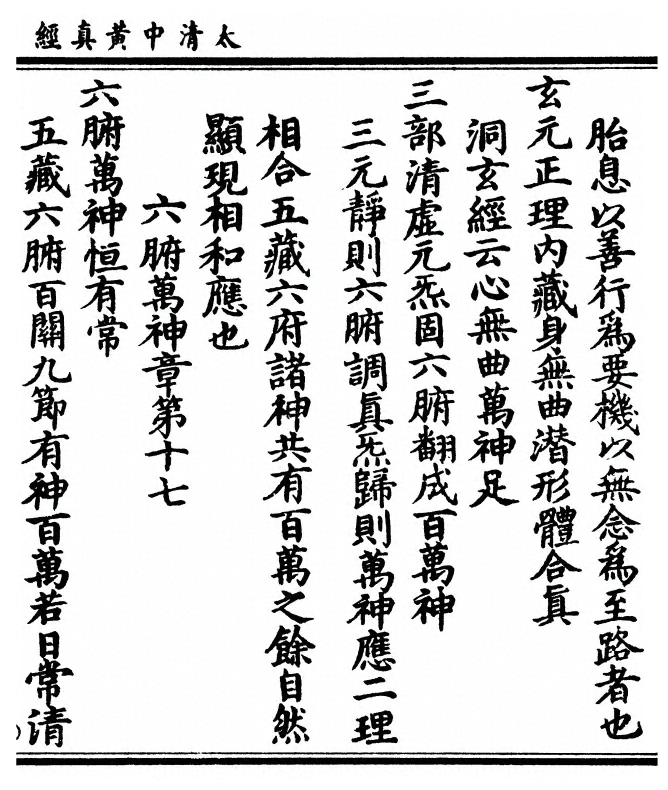 太清中黄真經
胎息以善行爲要機以無念爲至路者也
玄元正理内藏身無曲潛形體合眞
洞玄經云心無曲萬神足
三部清虛元炁固六腑翻成百萬神
三元靜則六腑調眞炁歸則萬神應二理
相合五藏六府諸神共有百萬之餘自然
顯現相和應也
六腑萬神章第十七
六腑萬神恒有常
五藏六腑百關九節有神百萬若日常清